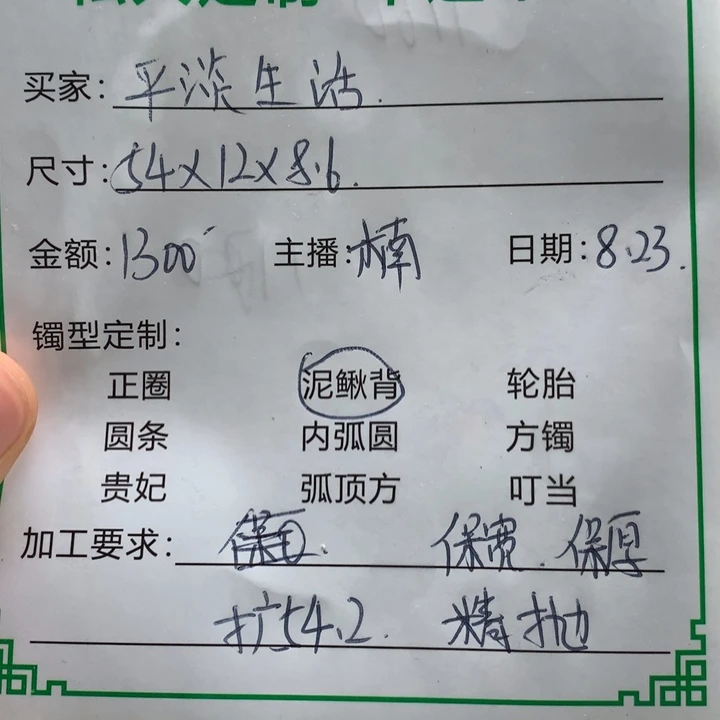 买家: 平淡生活.
尺寸: 54×12×8.6.
金额: 1300 主播: 楠 日期: 8.23.
镯型定制:
正圈 泥鳅背 轮胎
圆条 内弧圆 方镯
贵妃 弧顶方 叮当
加工要求: 保宽. 保厚
扩54.2. 精抛